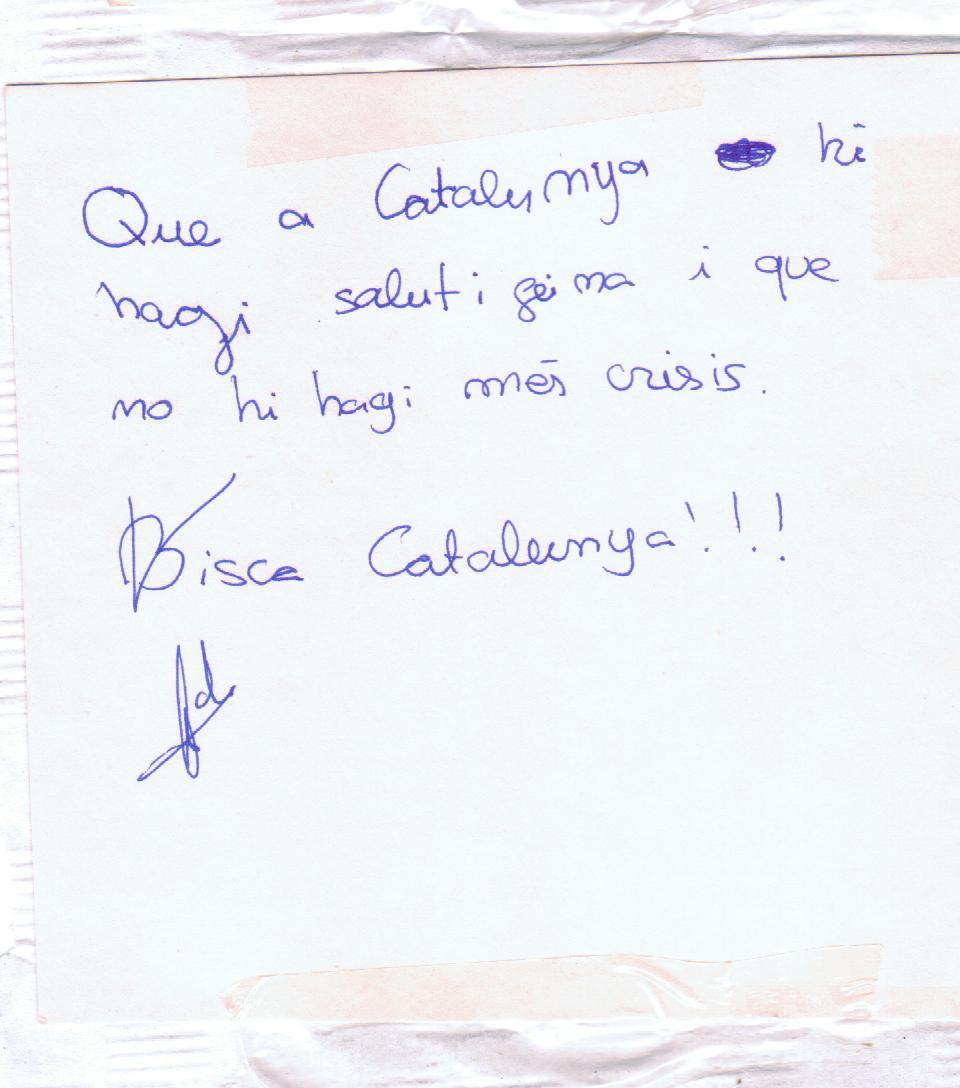 Que a Catalunya hi
hagi salut i feina i que
no hi hagi més crisis.
Visca Catalunya!!!